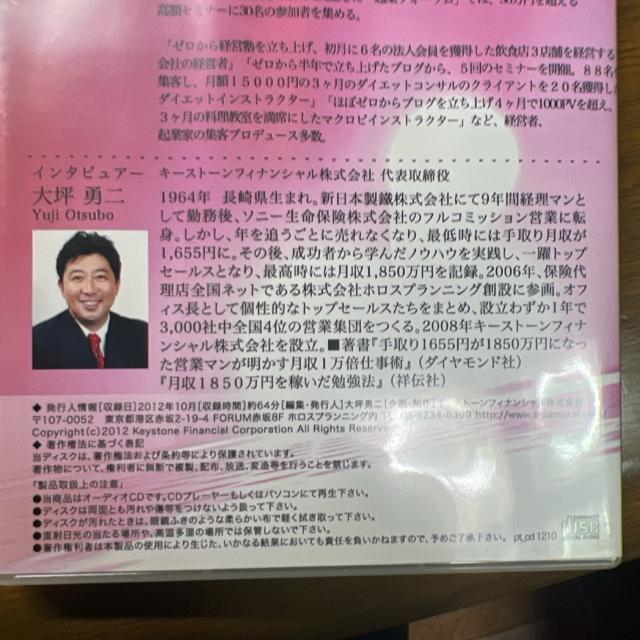 高額セミナーに30名の参加者を集める。
「ゼロから経営塾を立ち上げ、初月に6名の法人会員を獲得した飲食店3店舗を経営する
会社の経営者」「ゼロから半年で立ち上げたブログから、5回のセミナーを開催。88名
集客し、月額15000円の3ヶ月のダイエットコンサルのクライアントを20名獲得し
ダイエットインストラクター」「ほぼゼロからブログを立ち上げ4ヶ月で1000PVを超え、
3ヶ月の料理教室を満席にしたマクロビインストラクター」など、経営者、
起業家の集客プロデュース多数。
インタビュアー キーストーンフィナンシャル株式会社 代表取締役
大坪 勇二
Yuji Otsubo
1964年 長崎県生まれ。新日本製鐵株式会社にて9年間経理マンと
して勤務後、ソニー生命保険株式会社のフルコミッション営業に転
身。しかし、年を追うごとに売れなくなり、最低時には手取り月収が
1,655円に。その後、成功者から学んだノウハウを実践し、一躍トップ
セールスとなり、最高時には月収1,850万円を記録。2006年、保険代
理店全国ネットである株式会社ホロスプランニング創設に参画。オフ
ィス長として個性的なトップセールスたちをまとめ、設立わずか1年で
3,000社中全国4位の営業集団をつくる。2008年キーストーンフィナ
ンシャル株式会社を設立。■著書『手取り1655円が1850万円になっ
た営業マンが明かす月収1万倍仕事術』(ダイヤモンド社)
『月収1850万円を稼いだ勉強法』(祥伝社)
◆ 発行人情報【収録日】2012年10月【収録時間】約64分【編集・発行人】大坪勇二【企画・制作】キーストーンフィナンシャル株式会社
〒107-0052 東京都港区赤坂2-19-4 FORUM赤坂8F ホロスプランニング内
Copyright(c)2012 Keystone Financial Corporation All Rights Reserved.
◆ 著作権法に基づく表記
当ディスクは、著作権法および条約等により保護されています。
著作物について、権利者に無断で複製、配布、放送、変造等を行うことを禁じます。
「製品取扱上の注意」
●当商品はオーディオCDです。CDプレーヤーもしくはパソコンにて再生下さい。
●ディスクは両面とも汚れや傷等をつけないよう扱って下さい。
●ディスクが汚れたときは、眼鏡ふきのような柔らかい布で軽く拭き取って下さい。
●直射日光の当たる場所や、高温多湿の場所では保管しないで下さい。
●著作権利者は本製品の使用により生じた、いかなる結果においても責任を負いかねますので、予めご了承下さい。 pt_cd 1210
DISC